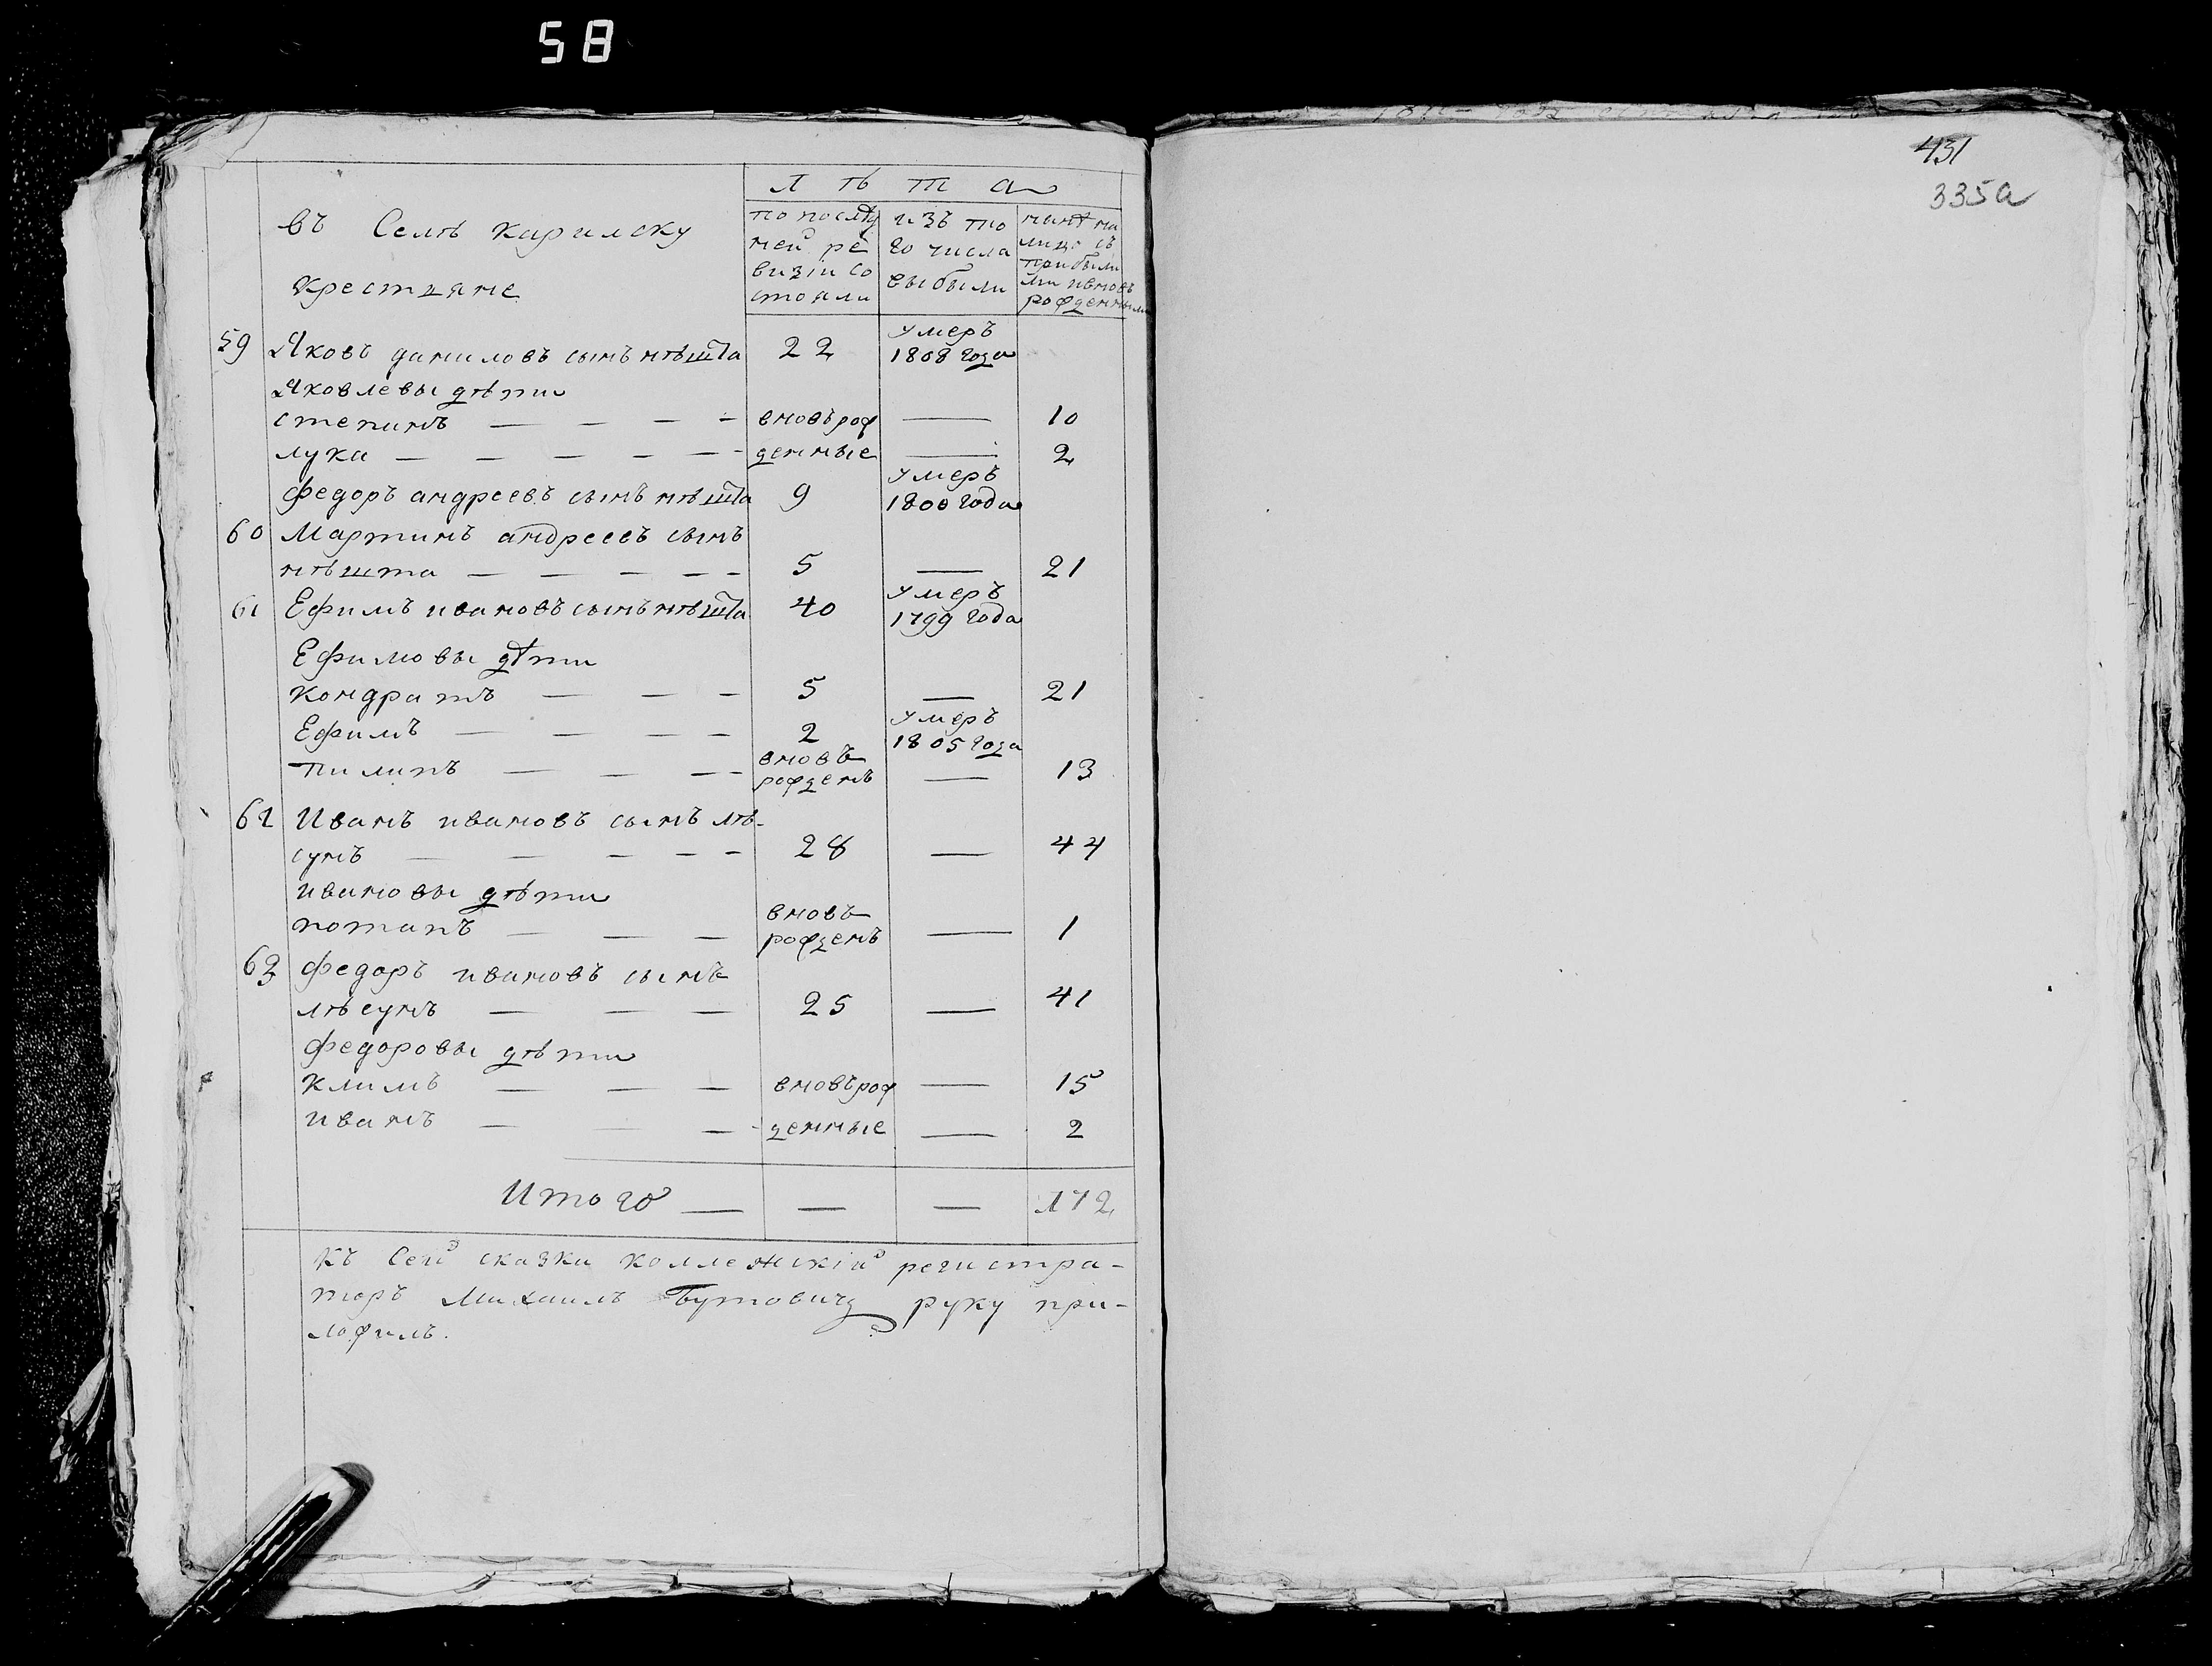 58
431
335а
Лѣта
въ Селѣ Карилску
крестяне
по послѣд
ней ре
визіи со
стояли
изъ то
го числа
выбыли
нинѣ на
лицо съ
прибыли
ми ивновъ
рожденными
59 Яковъ даниловъ сынъ нѣшта 22 умеръ 1808 года
Яковлевы дѣти
степанъ — — — — вновърож — 10
лука — — — — — денные — 2
федоръ андреевъ сынъ нѣшта 9 умеръ 1800 года
60 Мартинъ андреевъ сынъ
нѣшта — — — — — 5 — 21
61 Ефимъ ивановъ сынъ нѣшта 40 умеръ 1799 года
Ефимовы дѣти
кондратъ — — — 5 — 21
Ефимъ — — — — 2 умеръ 1805 года
пилипъ — — — — вновъ рожденъ — 13
62 Иванъ ивановъ сынъ лѣ-
сунъ — — — — — 28 — 44
ивановы дѣти
потапъ — — — вновъ рожденъ — 1
63 федоръ ивановъ сынъ
лѣсунъ — — — 25 — 41
федоровы дѣти
климъ — — — вновърож — 15
иванъ — — — денные — 2
Итого — — — 172
Къ сей сказки коллежскій регистра-
торъ Михаилъ Бутовичъ руку при-
ложилъ.